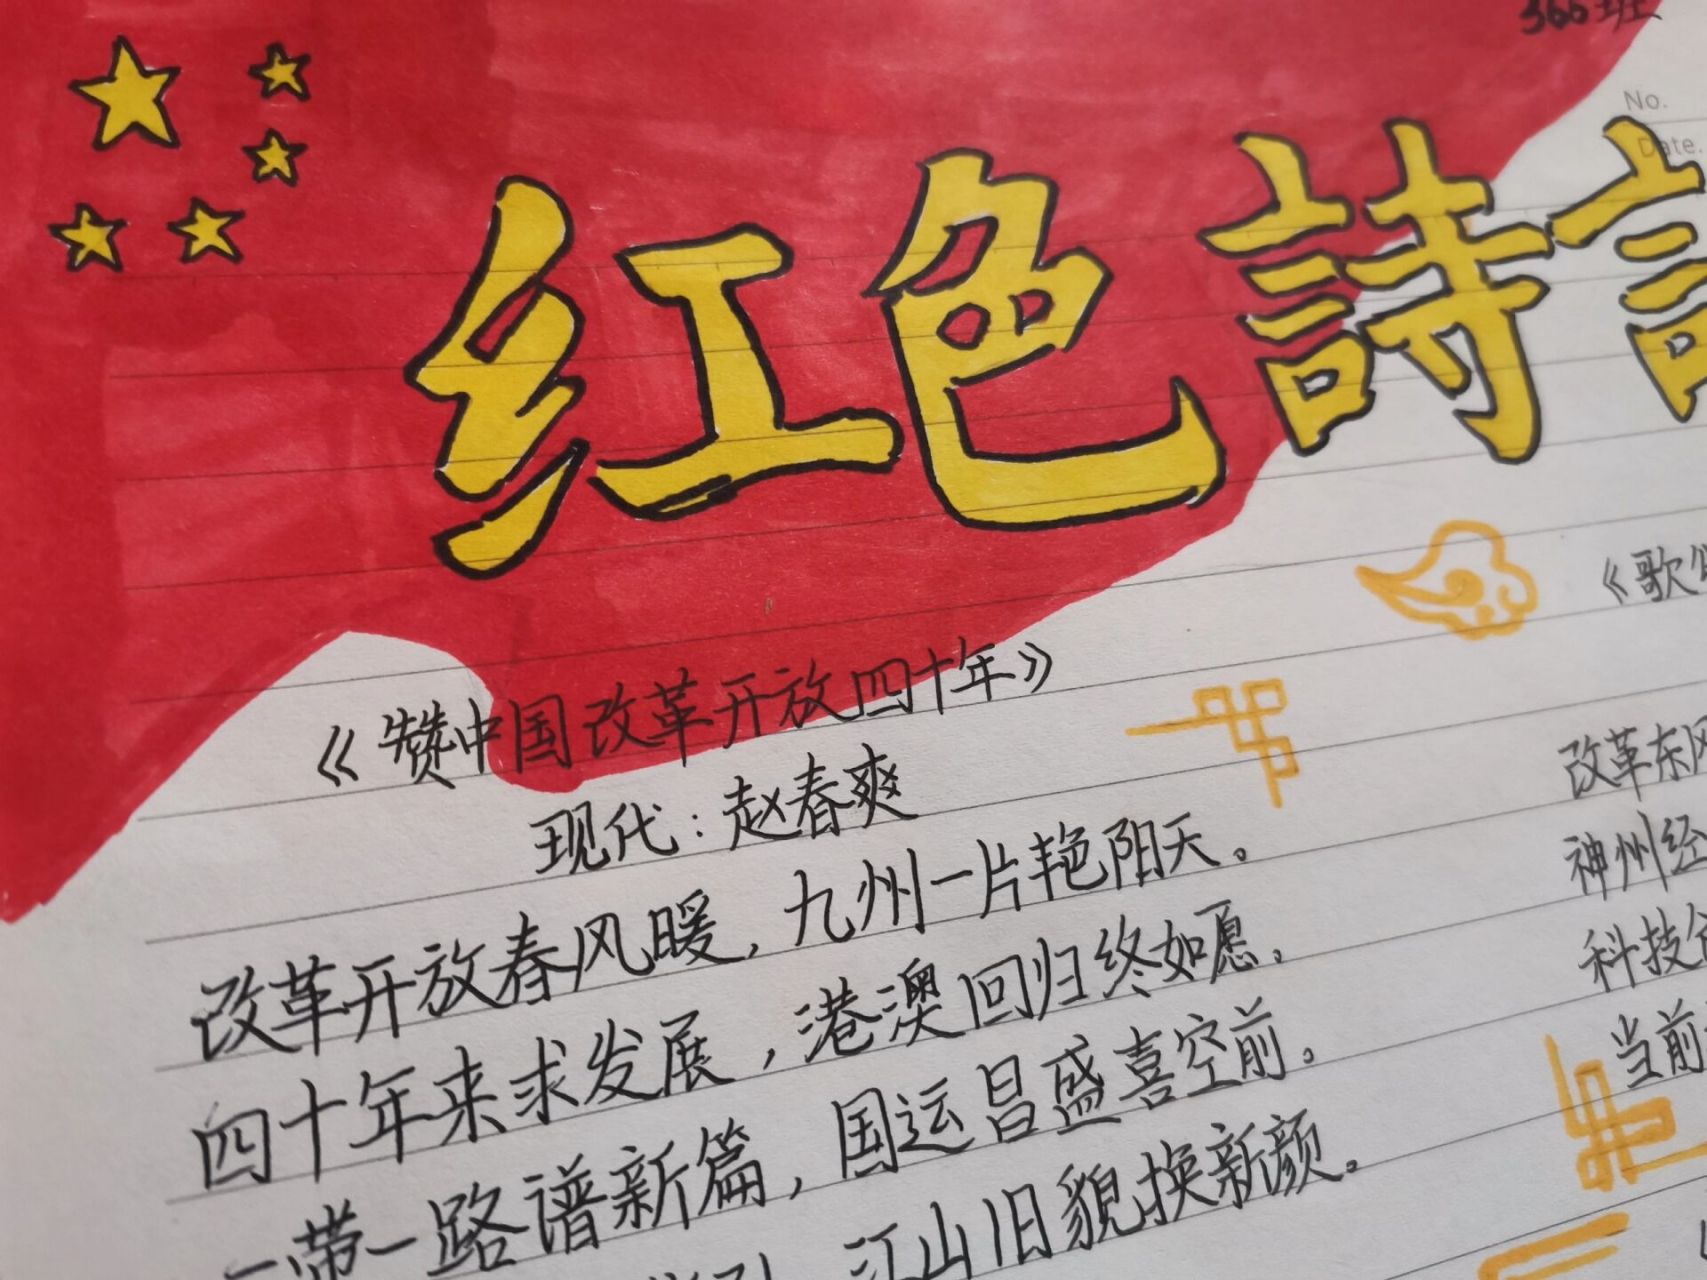 366班
No.
Date.
红色詩
《赞中国改革开放四十年》
现代：赵春爽
改革开放春风暖，九州一片艳阳天。
四十年来求发展，港澳回归终如愿。
一带一路谱新篇，国运昌盛喜空前。
江山旧貌换新颜。
《歌
改革东风
神州经
科技
当前